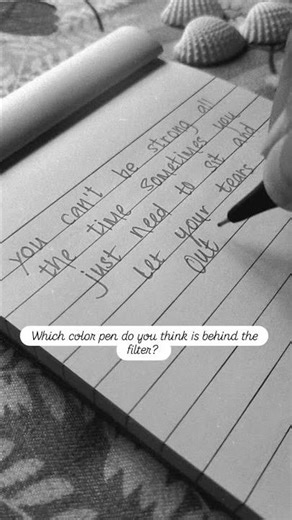 you can't be strong all
the time sometimes you
just need to sit and
let your tears
out
Which color pen do you think is behind the
filter?